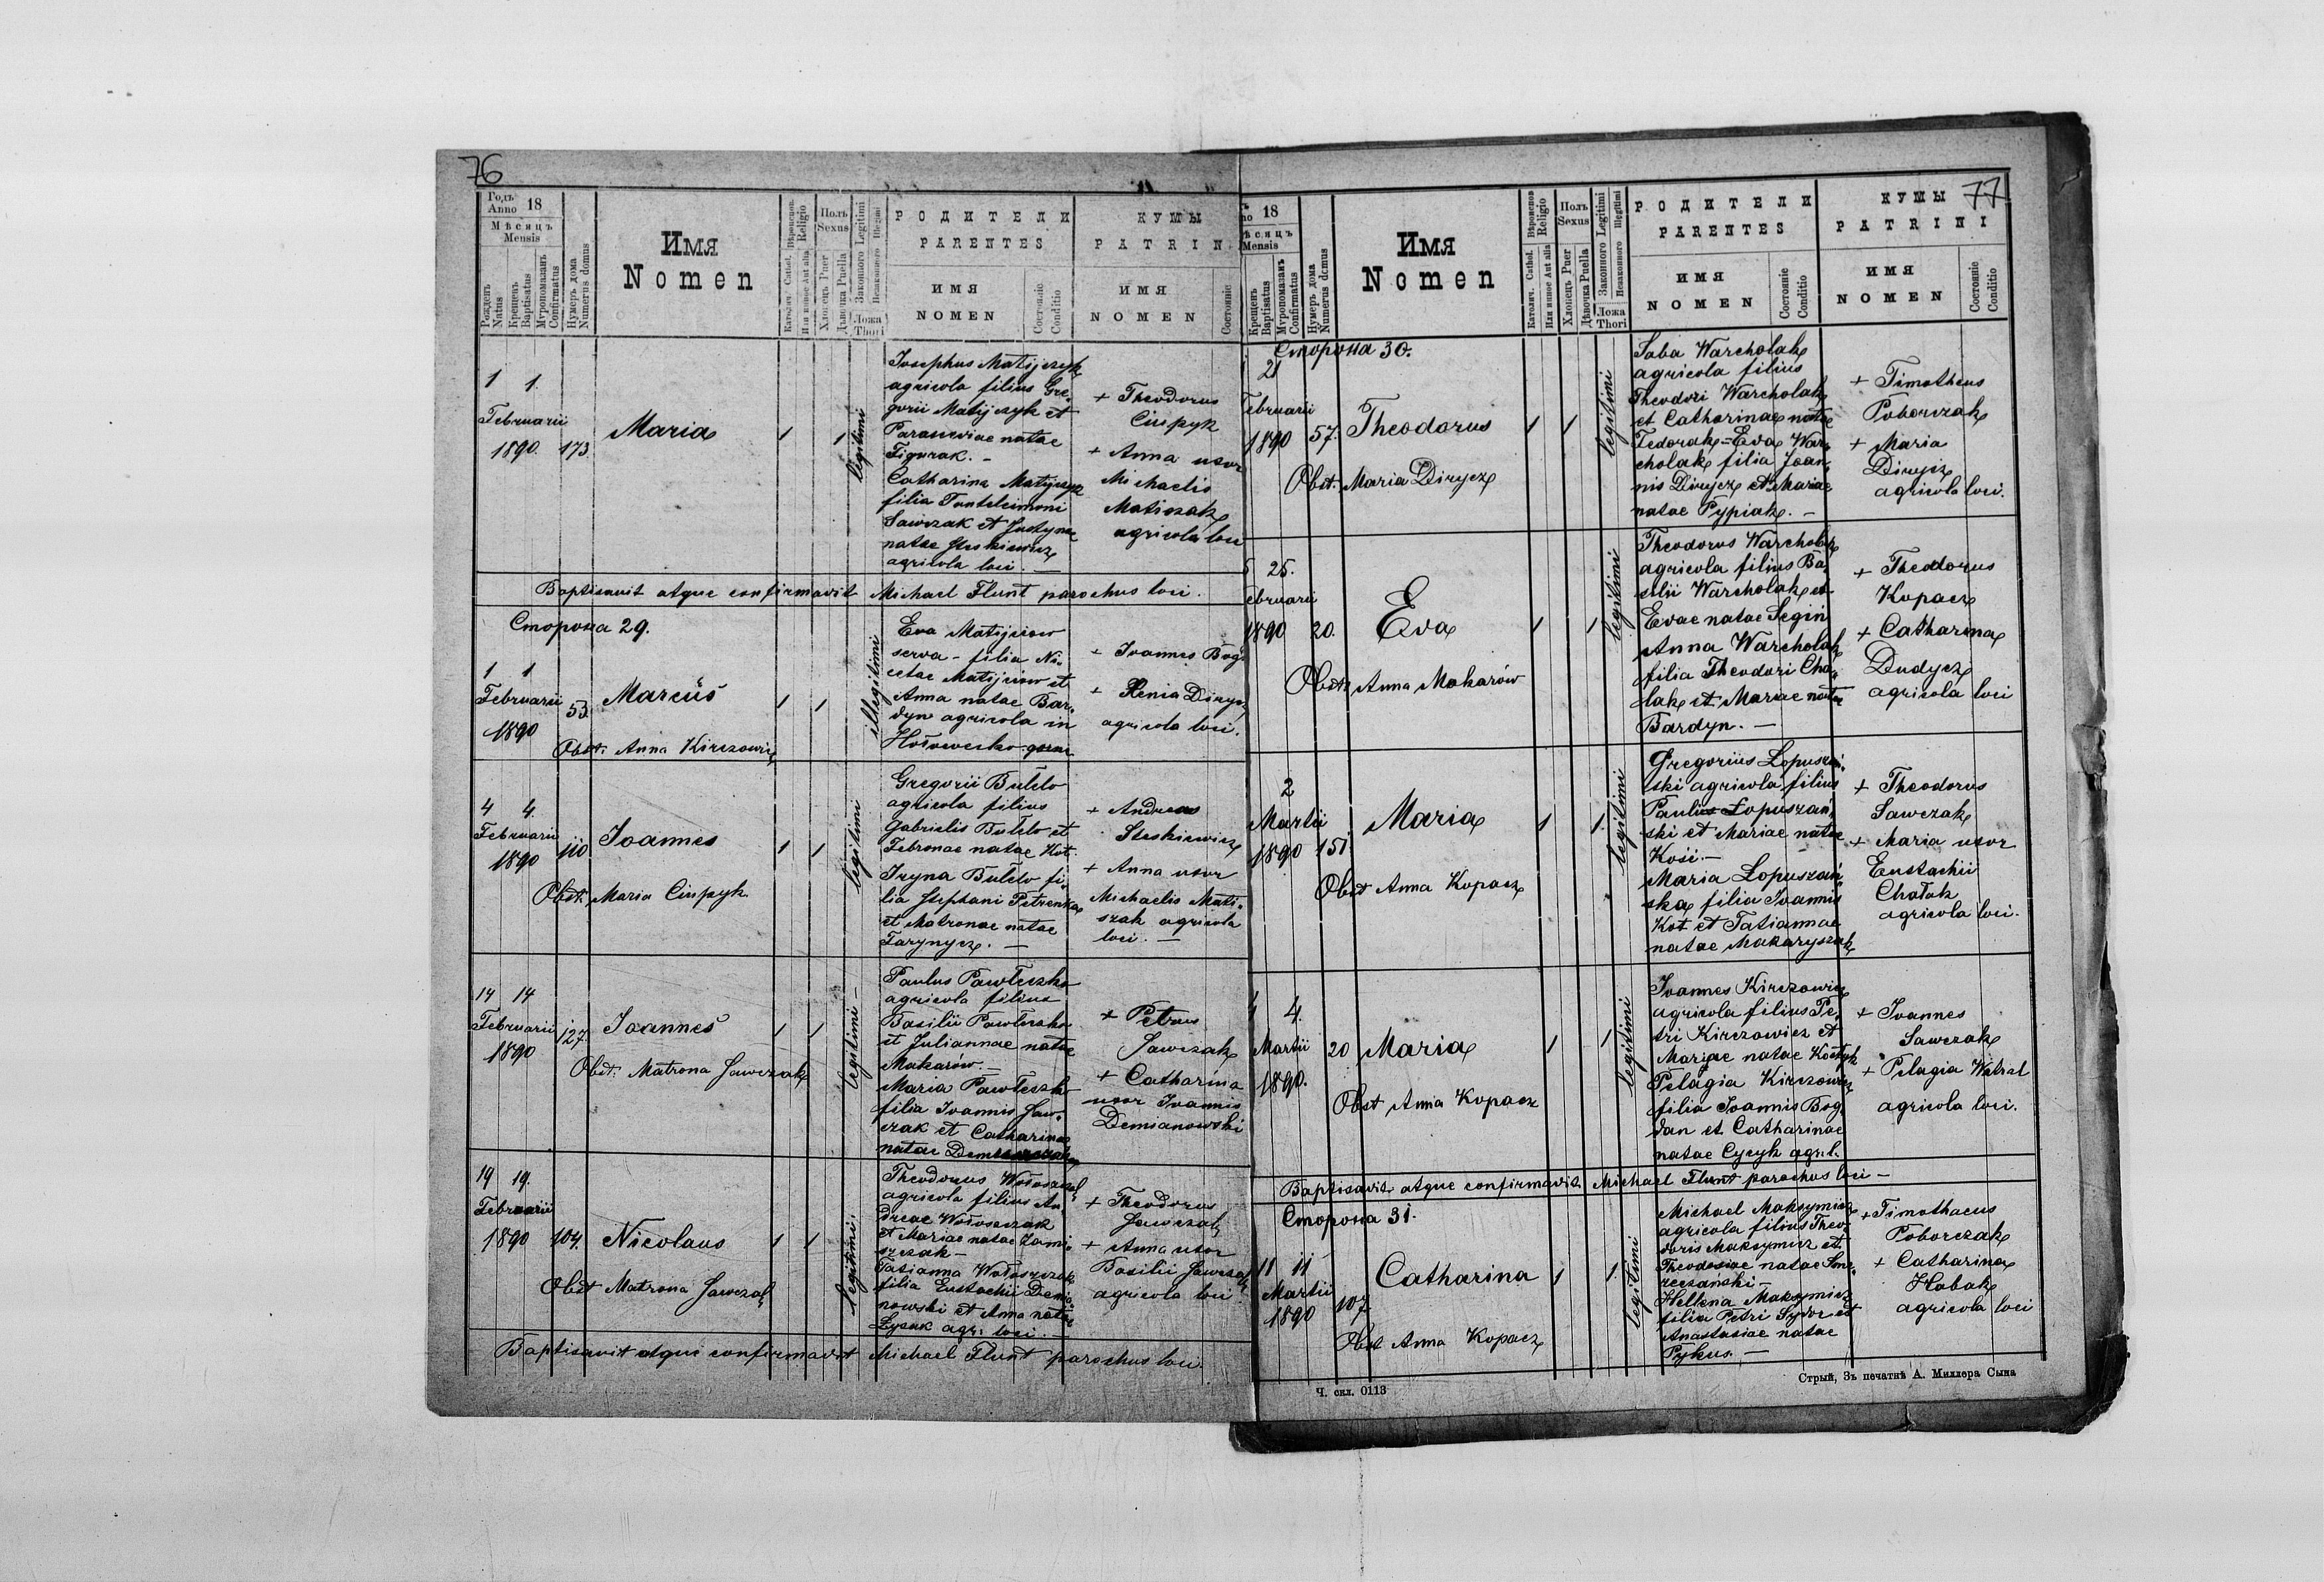 76
Годъ
Anno 18
Мѣсяцъ
Mensis
Рожденъ
Natus
Крещенъ
Baptisatus
Мѵропомазанъ
Confirmatus
Нумеръ дома
Numerus domus
Имя
Nomen
Вѣроиспов.
Religio
Католич. Cathol.
Или инное Aut alia
Полъ
Sexus
Хлопець Puer
Дѣвочка Puella
Законного Legitimi
Незаконного Illegitimi
Ложа
Thori
РОДИТЕЛИ
PARENTES
ИМЯ
NOMEN
Состоянiе
Conditio
КУМЫ
PATRIN
ИМЯ
NOMEN
Состоянiе
1 1.
Februarii
1890. 173
Maria
1 1
legitimi
Josephus Matijczyk
agricola filius Gre-
gorii Matijczyk et
Parasceviae natae
Figurak. -
Catharina Matijczyk
filia Panteleimoni
Sawczak et Justynae
natae Steskiewicz
agricola loci. -
+ Theodorus
Ciupyk
+ Anna uxor
Michaelis
Matiszak
agricola loci
Baptisavit atque confirmavit Michael Flunt parochus loci.
Сторона 29.
1 1
Februarii
1890
53.
Marcus
1 1
illegitimi
Obst. Anna Kirczowicz
Eva Matijciow
serva - filia Ni-
cetae Matijciow et
Anna natae Bar-
dyn agricola in
Hołowecko gorne
+ Joannes Bog
+ Xenia Dirycz
agricola loci.
4 4.
Februarii
1890 110
Joannes
1 1
legitimi
Obst. Maria Ciupyk
Gregorii Buleło
agricola filius
Gabrielis Buleło et
Febronae natae Kot.
Iryna Buleło fi-
lia Stephani Petrenka
et Matronae natae
Tarynycz. -
+ Andreas
Steskiewicz
+ Anna uxor
Michaelis Mati-
szak agricola
loci. -
14 14
Februarii
1890 127.
Joannes
1 1
legitimi -
Obst. Matrona Sawczak
Paulus Pawłeszko
agricola filius
Basilii Pawłeszko
et Juliannae natae
Makarów. -
Maria Pawłeszko
filia Joannis Saw-
czak et Catharinae
natae
+ Petrus
Sawczak
+ Catharina
uxor Joannis
Demianowski
19 19.
Februarii
1890 104.
Nicolaus
1 1
legitimi.
Obst Matrona Sawczak
Theodorus Wołoszczak
agricola filius An-
dreae Wołoszczak
et Mariae natae Zami-
szczak -
Tatianna Wołoszczak
filia Eustachii Demia-
nowski et Anna natae
Łysak agr. loci. -
+ Theodorus
Sawczak
+ Anna uxor
Basilii Sawczak
agricola loci
Baptisavit atque confirmavit Michael Flunt parochus loci.
77
18
Mensis
Крещенъ
Baptisatus
Мѵропомазанъ
Confirmatus
Нумеръ дома
Numerus domus
Имя
Nomen
Вѣроиспов
Religio
Католич. Cathol.
Или инное Aut alia
Полъ
Sexus
Хлопець Puer
Дѣвочка Puella
Законного Legitimi
Незаконного Illegitimi
Ложа
Thori
РОДИТЕЛИ
PARENTES
ИМЯ
NOMEN
Состоянiе
Conditio
КУМЫ
PATRINI
ИМЯ
NOMEN
Состоянiе
Conditio
Сторона 30.
21
Februarii
1890 57.
Theodorus
1 1
legitimi
Obst. Maria Dirycz
Saba Warcholak
agricola filius
Theodori Warcholak
et Catharinae natae
Fedorak - Eva War-
cholak filia Joan-
nis Dirycz et Mariae
natae Pypiak. -
+ Timotheus
Poborczak
+ Maria
Dirycz
agricola loci.
25.
Februarii
1890 20.
Eva
1 1
legitimi
Obst. Anna Makarów
Theodorus Warcholak
agricola filius Ba-
silii Warcholak et
Evae natae Segin
Anna Warcholak
filia Theodori Cha-
lak et Mariae natae
Bardyn. -
+ Theodorus
Kopacz
+ Catharina
Dudycz
agricola loci
2
Martii
1890 151
Maria
1 1
legitimi
Obst Anna Kopacz
Gregorius Lopuszań-
ski agricola filius
Paulus Lopuszań-
ski et Mariae natae
Kość. -
Maria Lopuszań-
ska filia Joannis
Kot et Tatiannae
natae Makaryszak
+ Theodorus
Sawczak
+ Maria uxor
Eustachii
Chałak
agricola loci.
4.
Martii 20
1890.
Maria
1 1
legitimi
Obst Anna Kopacz
Joannes Kirczowicz
agricola filius Pe-
tri Kirczowicz et
Mariae natae Kostyk
Pelagia Kirczowicz
filia Joannis Bog-
dan et Catharinae
natae Cycyk agr. l.
+ Joannes
Sawczak
+ Pelagia
agricola loci.
Baptisavit atque confirmavit Michael Flunt parochus loci -
Сторона 31.
11 11
Martii
1890 107.
Catharina
1 1
legitimi
Obst Anna Kopacz
Michael Maksymicz
agricola filius Theo-
doris Maksymicz et
Theodosiae natae Sme-
reczański -
Hellena Maksymicz
filia Petri Sydor et
Anastasiae natae
Pykus. -
+ Timothaeus
Poborczak
+ Catharina
Habak
agricola loci
Ч. скл. 0113
Стрый, Зъ печатнѣ А. Миллера Сына